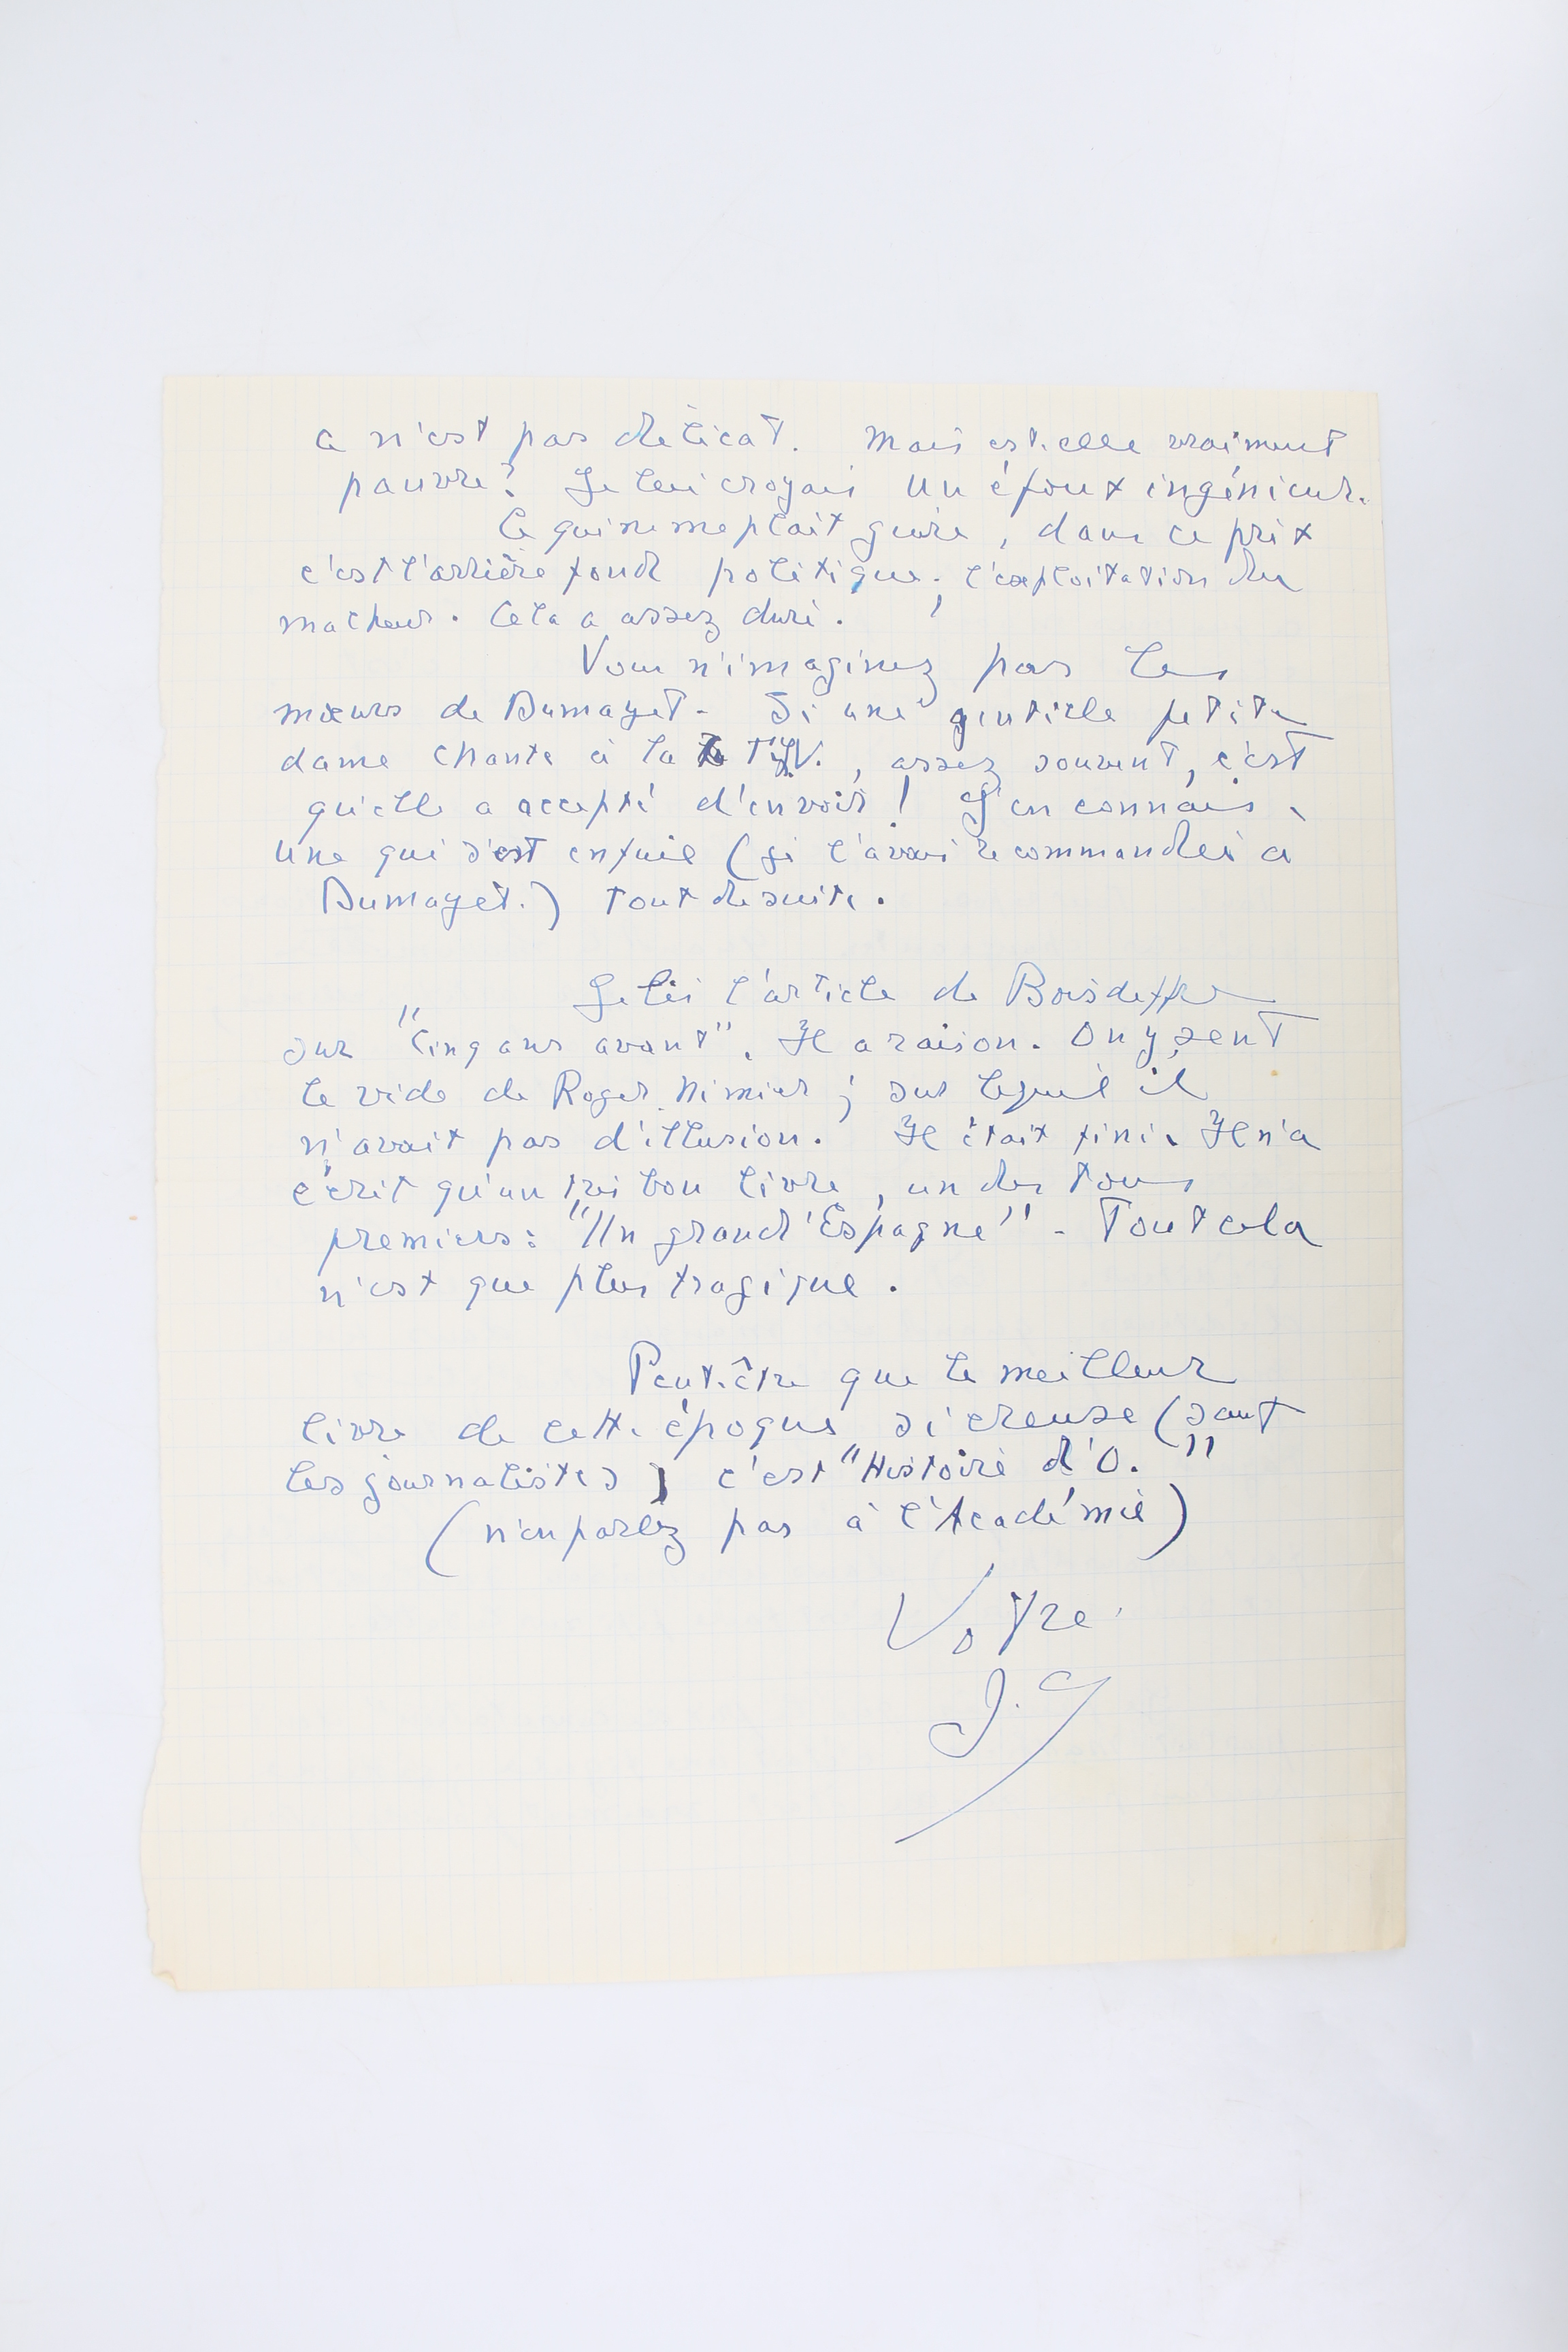 C n'est pas délicat. Mais est-elle vraiment
pauvre? Je lui croyais un époux ingénieur.
Ce qui ne me plait guère, dans ce prix
c'est l'arrière fond politique; l'exploitation du
malheur. Cela a assez duré.
Vous n'imaginez pas les
mœurs de Dumayet. Si une gentille petite
dame chante à la T.V., assez souvent, c'est
qu'elle a accepté d'en voir! J'en connais
une qui s'est enfuie (je l'avais recommandée à
Dumayet.) tout de suite.
Je lis l'article de Boisdeffre
sur "Cinq ans avant". Il a raison. On y sent
le vide de Roger Nimier; sur lequel il
n'avait pas d'illusion. Il était fini. Il n'a
écrit qu'un très bon livre, un des tous
premiers: "Un grand'Espagne" - Tout cela
n'est que plus tragique.
Peut-être que le meilleur
livre de cette époque si creuse (sauf
les journalistes) c'est "Histoire d'O."
(n'en parlez pas à l'Académie)
Votre
J. C